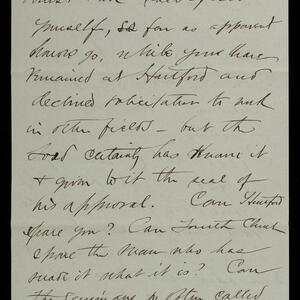 yourself, so far as apparent
honors go, while you have
remained at Hartford and
declined solicitation to work
in other fields - but the
Lord certainly has known it
& given to it the seal of
his approval. Can Hartford
spare you? Can Fourth Church
spare the man who has
made it what it is? Can
the seminary so often called